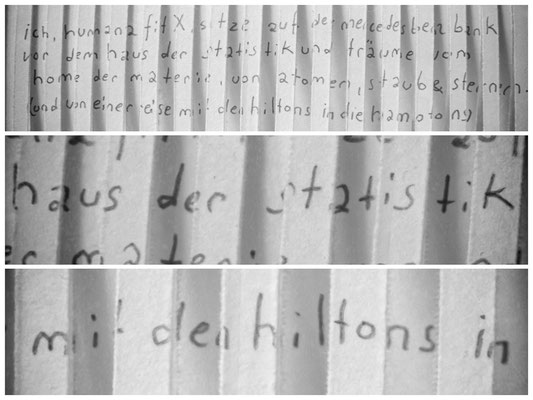 ich, humanafitX, sitze auf der mercedesbenz bank
vor dem haus der statistik und träume vom
home der materie, von atomen, staub & sternen.
(und von einer reise mit den hiltons in die hamptons)
haus der statistik
mit den hiltons in